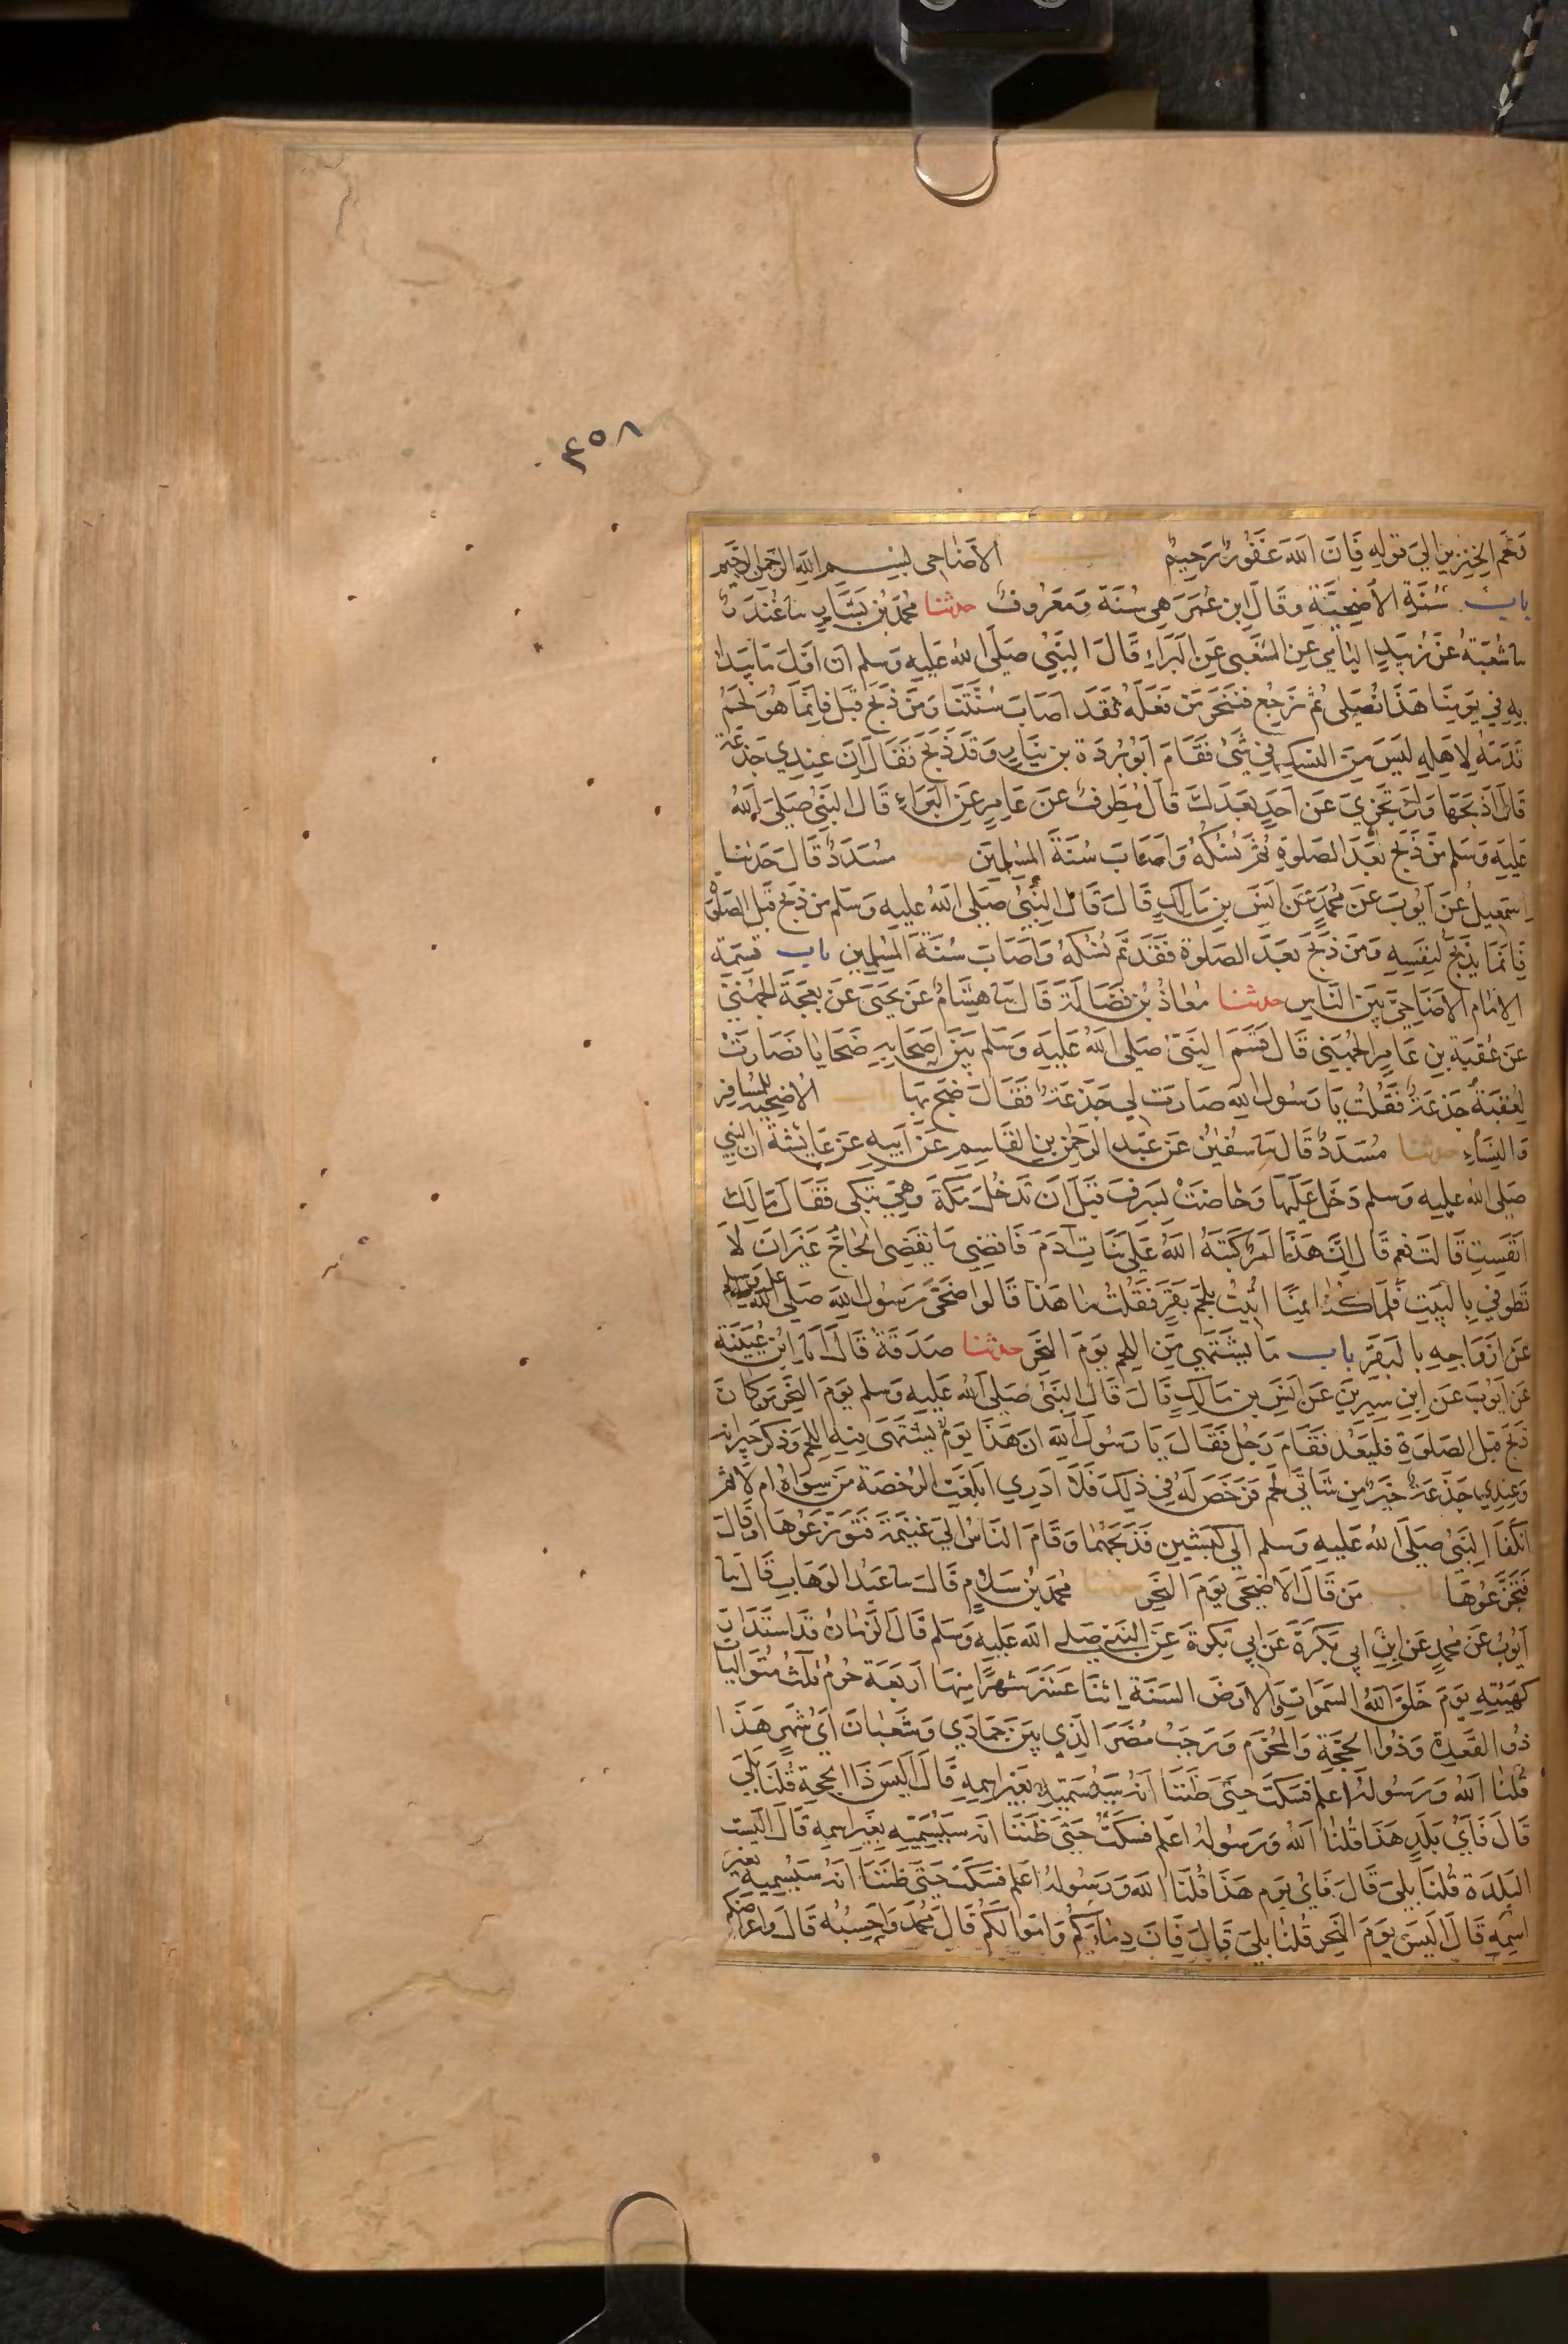 ٤٥٨
وَلَحْمَ الخِنْزِيرِ الي قوله فَانَّ اللهَ غَفُورٌ رَحِيمٌ الاَضَاحِى بسم الله الرحمن الرحيم
باب سُنَّةِ الأُضحِيَّةِ وقَالَ ابن عُمَرَ هِى سُنَّة وَمَعْرُوفٌ حدثنا محمد بن بَشَّارٍ سا غُنْدَرٌ
سا شعبَةُ عَن زُبَيدٍ اليَامِي عنِ الشعبى عَنِ البَرَاءِ قَالَ النَّبِيّ صَلَّى الله عَلَيه وَسلم ان اوَّلَ مَا نَبدأ
بِهِ فِي يَومِنَا هَذَا نُصَلى ثم نَرجِعُ فننحَر مَن فَعَلَهُ فقَد اصَابَ سُنَّتَنَا وَمَن ذَبَح قَبل فَانِمَا هُوَ لَحْمٌ
قدَّمَهُ لاَهلِهِ لَيسَ مِنَ النسكِ فِي شَىْ فقَامَ ابُو بُردَة بن نِيَارٍ وَقَد ذَبَحَ فَقَالَ ان عِندِي جَذَعَة
قَالَ اذبَحهَا وَلَن تَجْزِيَ عَن احَدٍ بَعدَكَ قَالَ مُطَرف عَن عَامِرٍ عَنِ البَرَاءِ قَالَ النَّبِيُّ صَلى اللهُ
عَلَيهِ وَسَلم مَن ذَبَحَ بَعدَ الصَلوةِ تَمَّ نُسُكُهُ وَاصَابَ سُنَّةَ المسلِمِينَ مُسَدَّدٌ قَالَ حَدثنا
اسْمعِيلُ عَن ايُّوبَ عَن مُحَمدٍ عَن انَسِ بنِ مَالِكٍ قَالَ قَالَ النَّبِيُّ صَلى اللهُ عَلَيه وَسَلم من ذبَح قَبل الصَلوة
فَانمَا يَذبَحُ لنفسِهِ وَمَن ذَبَحَ بَعدَ الصَلوة فَقَد تَمَّ نُسُكُهُ وَاصَابَ سُنَّةَ المُسْلِمِين باب قسمَة
الاِمَام الاَضَاحِيَّ بَينَ النَّاسِ حدثنا مُعَاذ بُن فَضَالَةَ قَالَ سا هِشَامٌ عَن يَحيَى عَن بَعجَةَ الجُهَنِيّ
عَن عُقبَة بنِ عَامِرٍ الجُهَنِي قَالَ قَسَمَ النَّبيّ صَلى اللهُ عَلَيهِ وَسَلم بَينَ اصحَابِهِ ضَحَايَا فَصَارَتْ
لِعُقبَة جَذعَةٌ فَقُلتُ يَا رَسُولَ اللهِ صَارَت لِي جَذَعَةٌ فَقَالَ ضَحِّ بِهَا الاضحِية للمُسَافِر
وَالنِسَاءِ حدثنا مُسَدَدٌ قَالَ سا سُفينُ عَن عَبدِ الرَحمَنِ بنِ القَاسِمِ عَن ابِيهِ عَن عَايشَة ان النبي
صَلى الله عليه وَسلم دَخَلَ عَلَيهَا وَحَاضَتْ بِسَرِفَ قَبلَ ان تَدخُلَ مَكةَ وَهِيَ تَبكِى فَقَالَ مَا لَكِ
انَفِستِ قَالَت نعم قَالَ انَّ هَذَا امرٌ كَتَبَهُ اللهُ عَلَى بَنَاتِ ادَمَ فَاقضِي مَا يَقضِي الحَاجُّ غَيرَ ان لاَ
تَطُوفي بِالبَيتِ فَلَما كُنا بِمِنًا اُتِيتُ بلَحمِ بَقَرٍ فَقُلتُ مَا هَذَا قَالُوا ضَحَّى رَسُولُ اللهِ صَلى الله عليه وسلم
عَن ازوَاجِهِ بِالبَقَرِ باب مَا يُشتَهى مِنَ اللحمِ يَومَ النَّحرِ حدثنا صَدَقَةُ قَالَ انا ابنُ عُيَينَة
عَن ايوبَ عَنِ ابنِ سِيرِينَ عَن انَسِ بن مَالِكٍ قَالَ قَالَ النَّبيُّ صَلى اللهُ عَلَيه وَسلم يَومَ النَحرِ مَن كَانَ
ذَبَحَ قَبل الصَلوَةِ فَليُعِد فَقَامَ رَجُل فَقَالَ يَا رَسُولَ اللهِ ان هَذَا يَومٌ يُشتَهَى فِيهِ اللحم وَذكر جيرانه
وَعِندِي جَذَعَةٌ خَيرٌ مِن شَاتَي لَحمٍ فَرَخَّصَ لَهُ فِي ذلِكَ فَلاَ ادرِي ابَلَغَتِ الرُخصَة مَن سِوَاهُ ام لاَ ثم
انكَفَأ النَّبيُّ صَلى اللهُ عَلَيهِ وَسلم الي كَبشَينِ فَذَبَحَهُمَا وَقَامَ النَّاسُ الي غُنَيمَة فَتَوَزَّعُوهَا او قَالَ
فَتَجَزَّعُوهَا باب مَن قَالَ الاَضحَى يَومَ النَّحرِ حدثنا مُحمدُ بنُ سَلاَمٍ قَالَ سا عَبدُ الوَهَّابِ قَالَ سا
ايُّوبُ عَن مُحمدٍ عَن ابنِ ابى بَكرَةَ عَن ابي بَكرَةَ عَنِ النَّبِيّ صَلى الله عَلَيهِ وَسَلم قَالَ الزمَانُ قَد استَدَارَ
كَهَيئَتِهِ يَومَ خَلَقَ اللهُ السَموَاتِ وَالارضَ السَنَة اثنَا عَشَرَ شهرًا مِنهَا اربَعَة حُرُم ثلاث مُتَوَاليات
ذُوا القَعدَةِ وَذُوا الحِجَّةِ وَالمُحَرَّم وَرَجَبُ مُضَرَ الذِي بَينَ جمَادَي وَشَعبَانَ ايُّ شَهرٍ هَذَا
قُلنَا اللهُ وَرَسُولُهُ اعلم فسَكَتَ حَتى ظَنَنَّا انهُ سَيُسَمِّيهِ بِغَيرِ اسمِهِ قَالَ الَيسَ ذَا الحجةِ قُلنَا بَلَى
قَالَ فَايُّ بَلَدٍ هَذَا قُلنَا اللهُ وَرَسُولهُ اعلم فسَكَتَ حَتى ظَنَنَّا انه سَيُسَمِّيهِ بِغَيرِ اسمِهِ قَالَ الَيست
البَلدَة قُلنَا بَلي قَالَ فَايُّ يَومٍ هَذَا قُلنَا اللهُ وَرَسُولهُ اعلم فسَكَتَ حَتى ظَنَنَّا انهُ سَيُسَمِيهِ بغير
اسمِهِ قَالَ الَيسَ يَومَ النَّحر قُلنَا بلي قَالَ فَانَّ دِمَاءَكُم وَاموَالَكُم قَالَ مُحَمدٌ وَاحسِبُهُ قَالَ وَاعراضكم